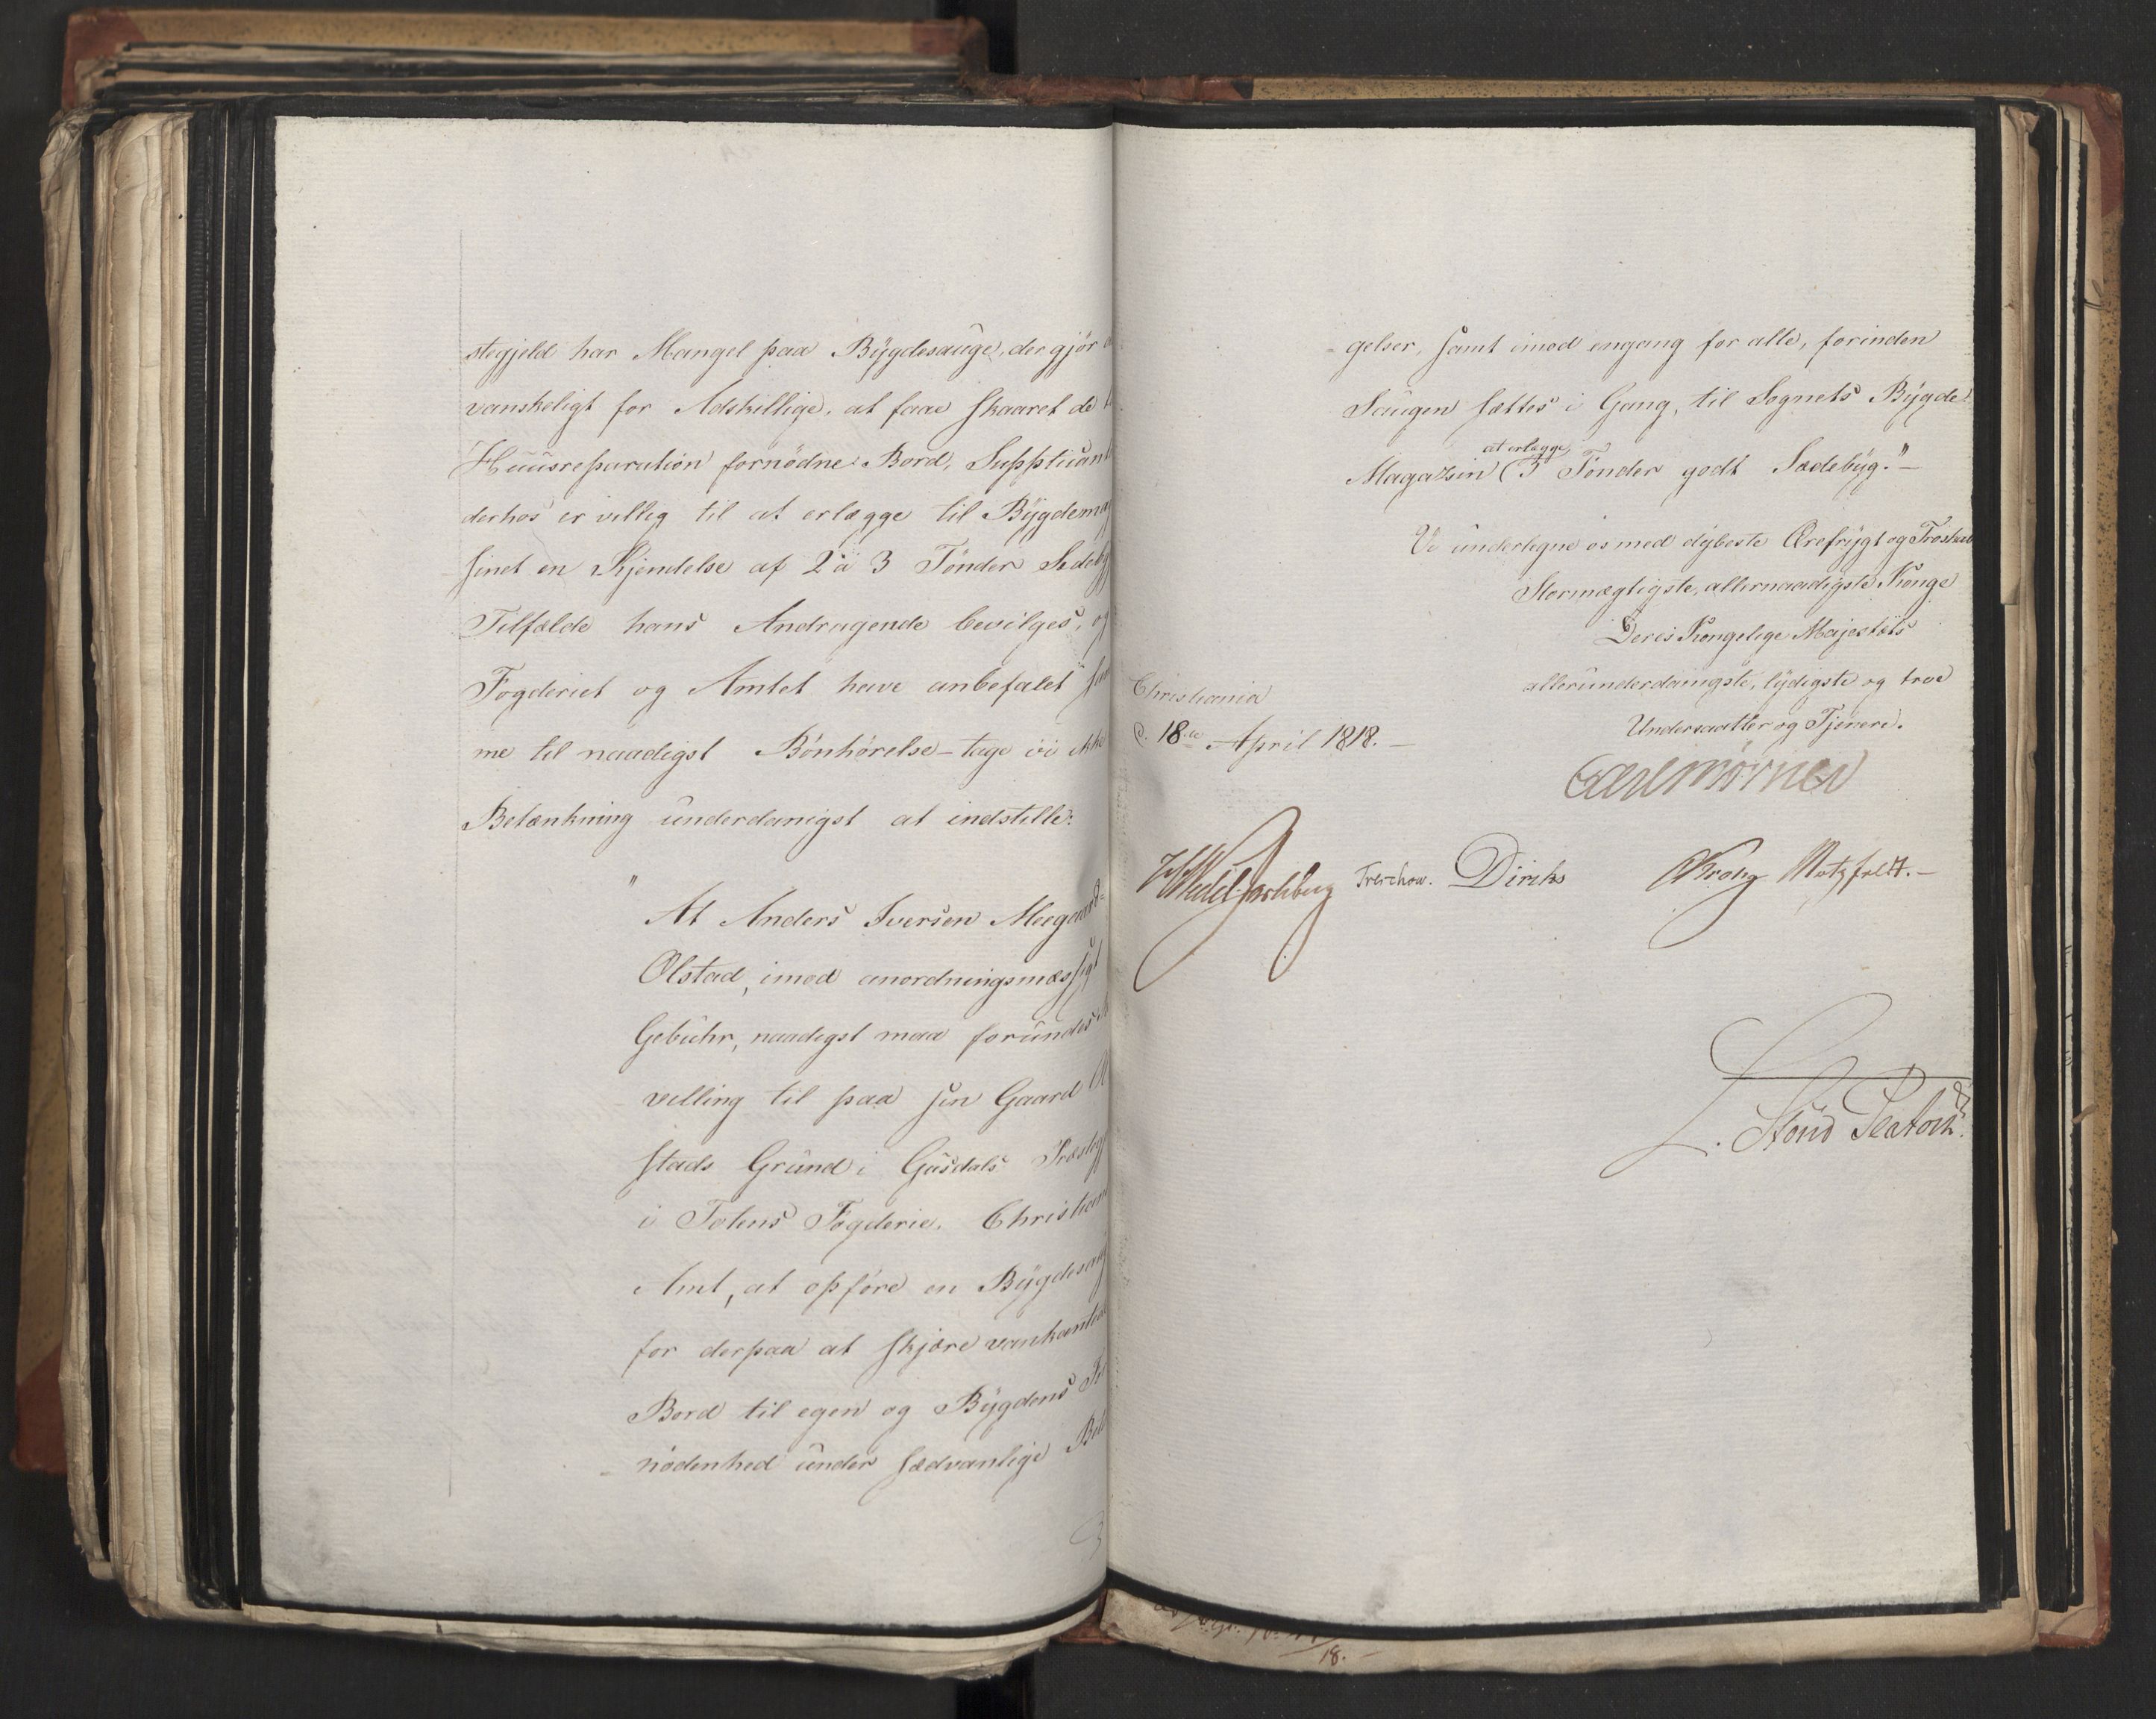 stegjeld har Mangel paa Bÿgdesauge, der gjør
vanskeligt for Adskillige, at faae skaaret de
Huusreparation fornødne Bord, Supplicant
derhos er villig til at erlægge til Bÿgdema
sinet en Kjendelse af 2 à 3 Tønder Sædebÿg
Tilfælde hans Andragende bevilges, og
Fogderiet og Amtet have anbefalet
me til naadigst Bønhørelse – tage vi ikke
Betænkning underdanigst at indstille:
"At Anders Iversen Meegaard-
Olstad, imod anordningsmæssigt
Gebuhr, naadigst maa forundes
velling til paa sin Gaard
stads Grund i Gusdals Præstegj
i Totens Fogderie, Christians
Amt, at opføre en Bÿgdesaug
for derpaa at skjære vankantede
Bord til egen og Bÿgdens
nødenhed under sædvanlige
gelser, samt imod engang for alle, forinden
Saugen sættes i Gang, til Sognets Bÿgde-
at erlægge
Magazin (3 Tønder godt Sædebÿg."—
Vi undertegne os med dÿbeste Ærefrÿgt og Troskab
Stormægtigste, allernaadigste Konge
Deres Kongelige Majestæts
allerunderdanigste, lÿdigste og troe
Undersaatter og Tjenere.
Christiania
d. 18de April 1818.—
Carl Mörner
HWedel Jarlsberg Treschow. Diriks CKrohg Motzfeldt.—
L. Stoud Platou
18.—